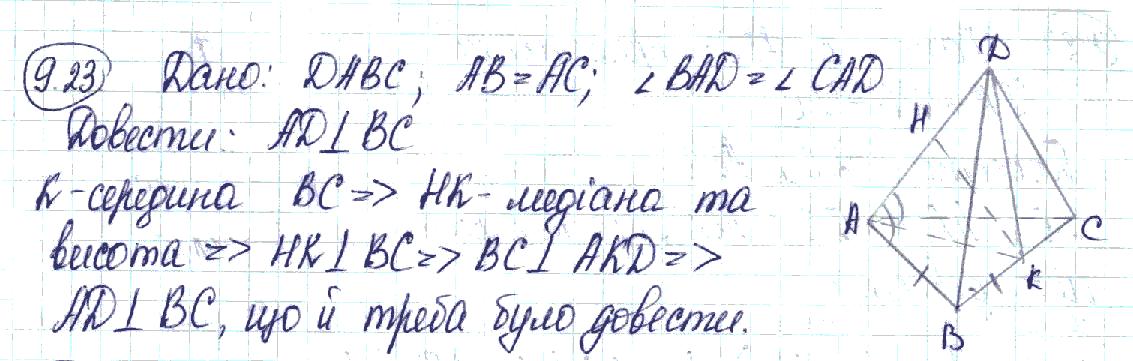 9.23 Дано: DABC; AB = AC; ∠ BAD = ∠ CAD
Довести: AD⊥ BC
K-середина BC => HK- медіана та
висота => HK⊥ BC => BC⊥ AKD =>
AD⊥ BC, що й треба було довести.
D
H
A
C
K
B